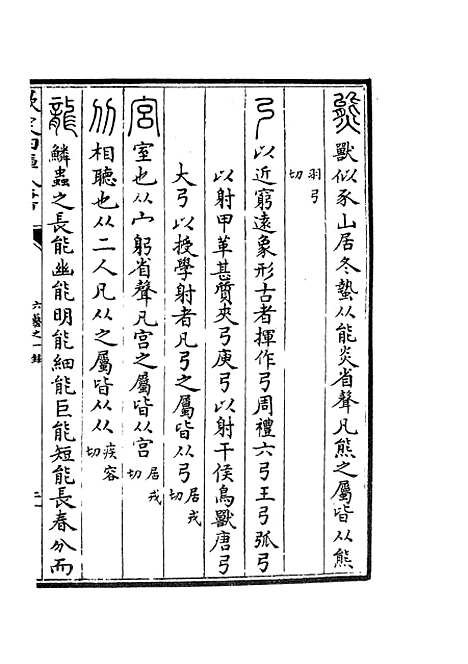 熊獸似豕山居冬蟄从能炎省聲凡熊之屬皆从熊
羽弓切
弓以近窮遠象形古者揮作弓周禮六弓王弓弧弓
以射甲革甚質夾弓庾弓以射干侯鳥獸唐弓
大弓以授學射者凡弓之屬皆从弓居戎切
宮室也从宀躬省聲凡宫之屬皆从宫居戎切
从相聽也从二人凡从之屬皆从从疾容切
龍鱗蟲之長能幽能明能細能巨能短能長春分而
六藝之一錄